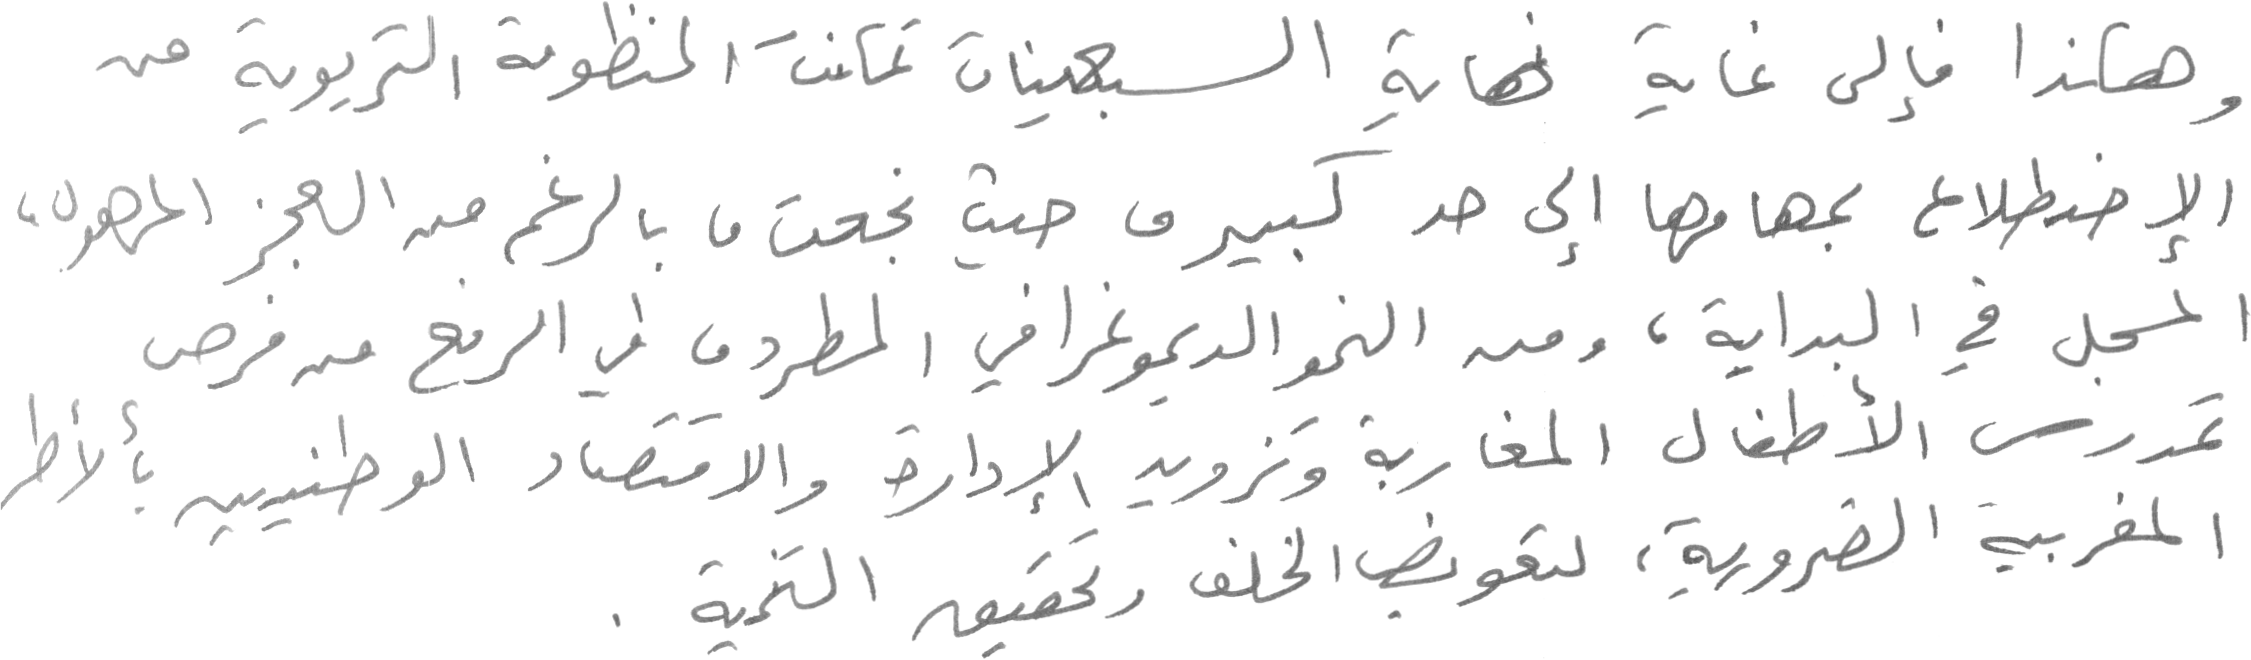 وهكذا فإلى غاية نهاية السبعينات تمكنت المنظومة التربوية من
الإضطلاع بمهامها إلى حد كبير، حيث نجحت، بالرغم من العجز المهول،
المسجل في البداية، ومن النمو الديموغرافي المطرد، في الرفع من فرص
تمدرس الأطفال المغاربة وتزويد الإدارة والاقتصاد الوطنيين بألأطر
المغربية الضرورية، لتعويض الخلف وتحقيق التنمية.